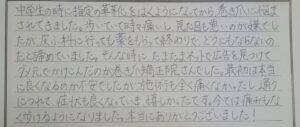 中学生の時に指定の革靴をはくようになってから巻き爪に悩ま
されてきました。歩いていて時々痛いし、見た目も悪いのが嫌でし
たが、皮ふ科に行っても薬をもらって終わりで、どうにもならないの
だと諦めていました。そんな時にたまたまネットで広告を見つけて
ダメ元でかけこんだのが巻き爪矯正院さんでした。最初は本当
に良くなるのか不安でしたが、施術も全く痛くなかったし、通う
につれて、症状も良くなっていき嬉しかったです。今では痛みもなく
歩けるようになりました。本当にありがとうございました！